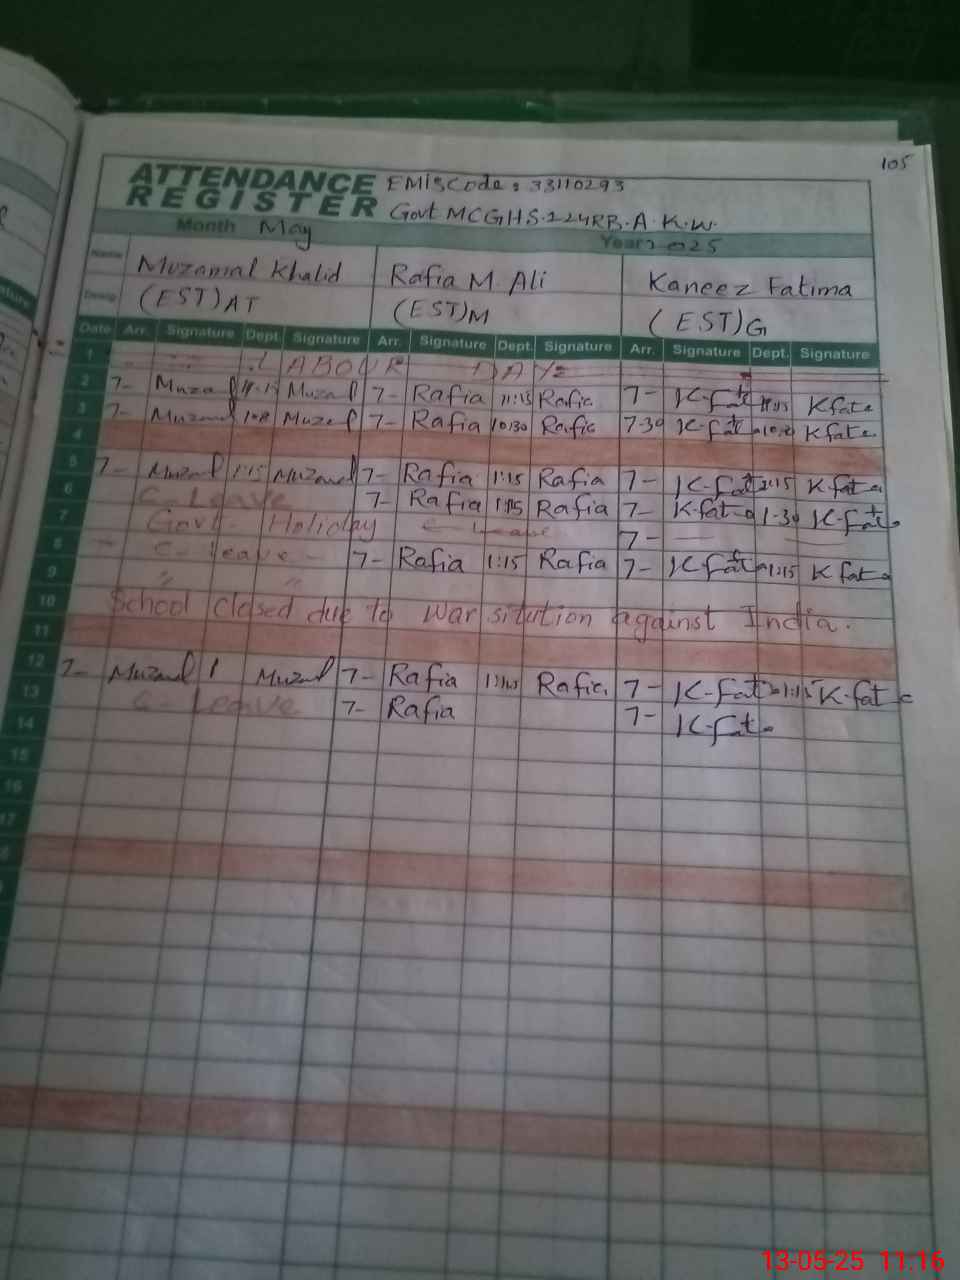 105
ATTENDANCE REGISTER
EMIS Code : 33110293
Govt MCGHS.124RB.A.K.W.
Month May Year 2025
Name Muzamal Khalid Rafia M. Ali Kaneez Fatima
Desig (EST) AT (EST) M (EST) G
Date Arr. Signature Dept. Signature Arr. Signature Dept. Signature Arr. Signature Dept. Signature
1 LABOUR DAY
2 7- 7- Rafia 11:15 Rafia 7- K-Fat
3 7- 7- Rafia 10:30 Rafia 7-30 K-Fat
4
5 7- 1:15 7- Rafia 1:15 Rafia 7- K-Fat 1:15 K fat
6 C. Leave 7- Rafia 1:15 Rafia 7- K-fat 1-30 K-fat
7 Govt. Holiday ← Leave 7- —
8 C- leave - 7- Rafia 1:15 Rafia 7- K-Fat 1:15 K fat
9 " "
10 School closed due to war sitution against India.
11
12 7- 1 7- Rafia Rafia 7- K-Fat 1:15 K-fat
13 C Leave 7- Rafia 7- K-fat
14
15
16
17
13-05-25 11:16